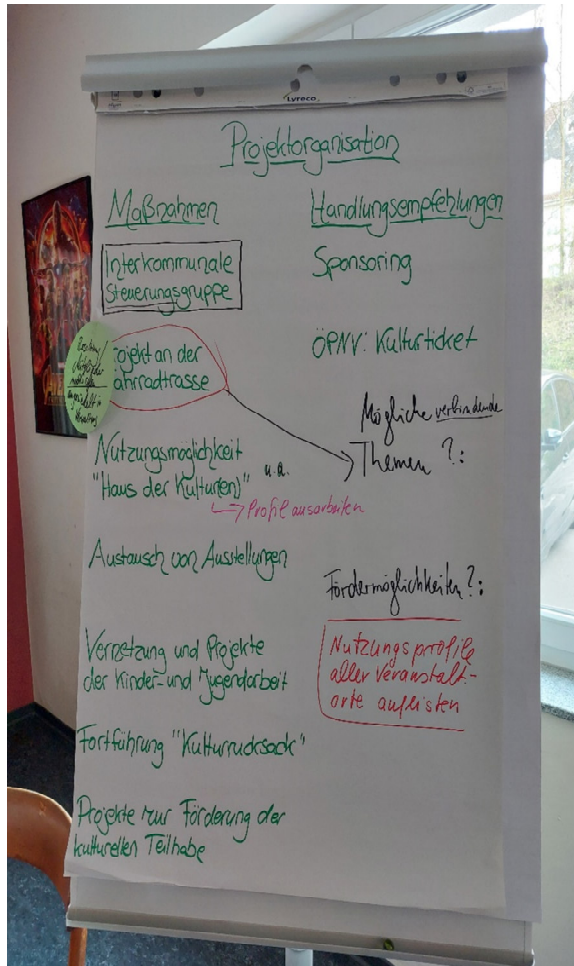 Lyreco
Projektorganisation
Maßnahmen
Interkommunale
Steuerungsgruppe
ojekt an der
ahrradtrasse
Nutzungsmöglichkeit
"Haus der Kultur(en)" u.a.
Profil ausarbeiten
Austausch von Ausstellungen
Vernetzung und Projekte
der Kinder- und Jugendarbeit
Fortführung "Kulturrucksack"
Projekte zur Förderung der
kulturellen Teilhabe
Handlungsempfehlungen
Sponsoring
ÖPNV: Kulturticket
Mögliche verbindende
Themen ?:
Fördermöglichkeiten ?:
Nutzungsprofile
aller Veranstalt-
orte auflisten